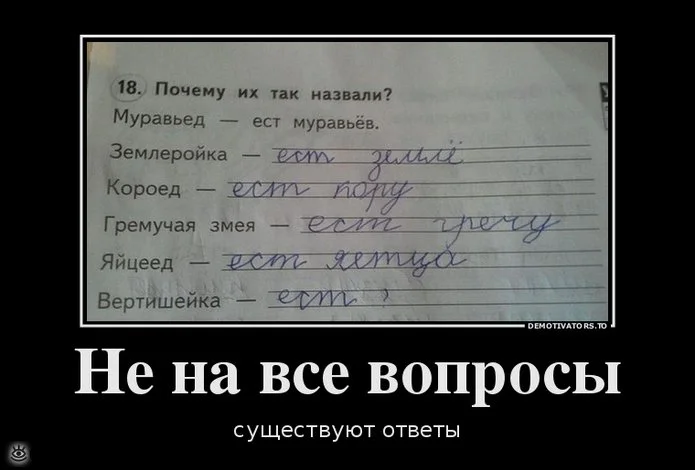 18. Почему их так назвали?
Муравьед — ест муравьёв.
Землеройка — ест землё
Короед — ест пору
Гремучая змея — ест гречу
Яйцеед — ест яетца
Вертишейка — ест ?
DEMOTIVATORS.TO
Не на все вопросы
существуют ответы